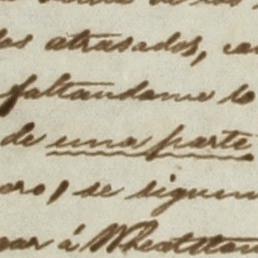 los atrasados, con
faltandome lo
de una parte
oro, se siguen
gar á Wheatston